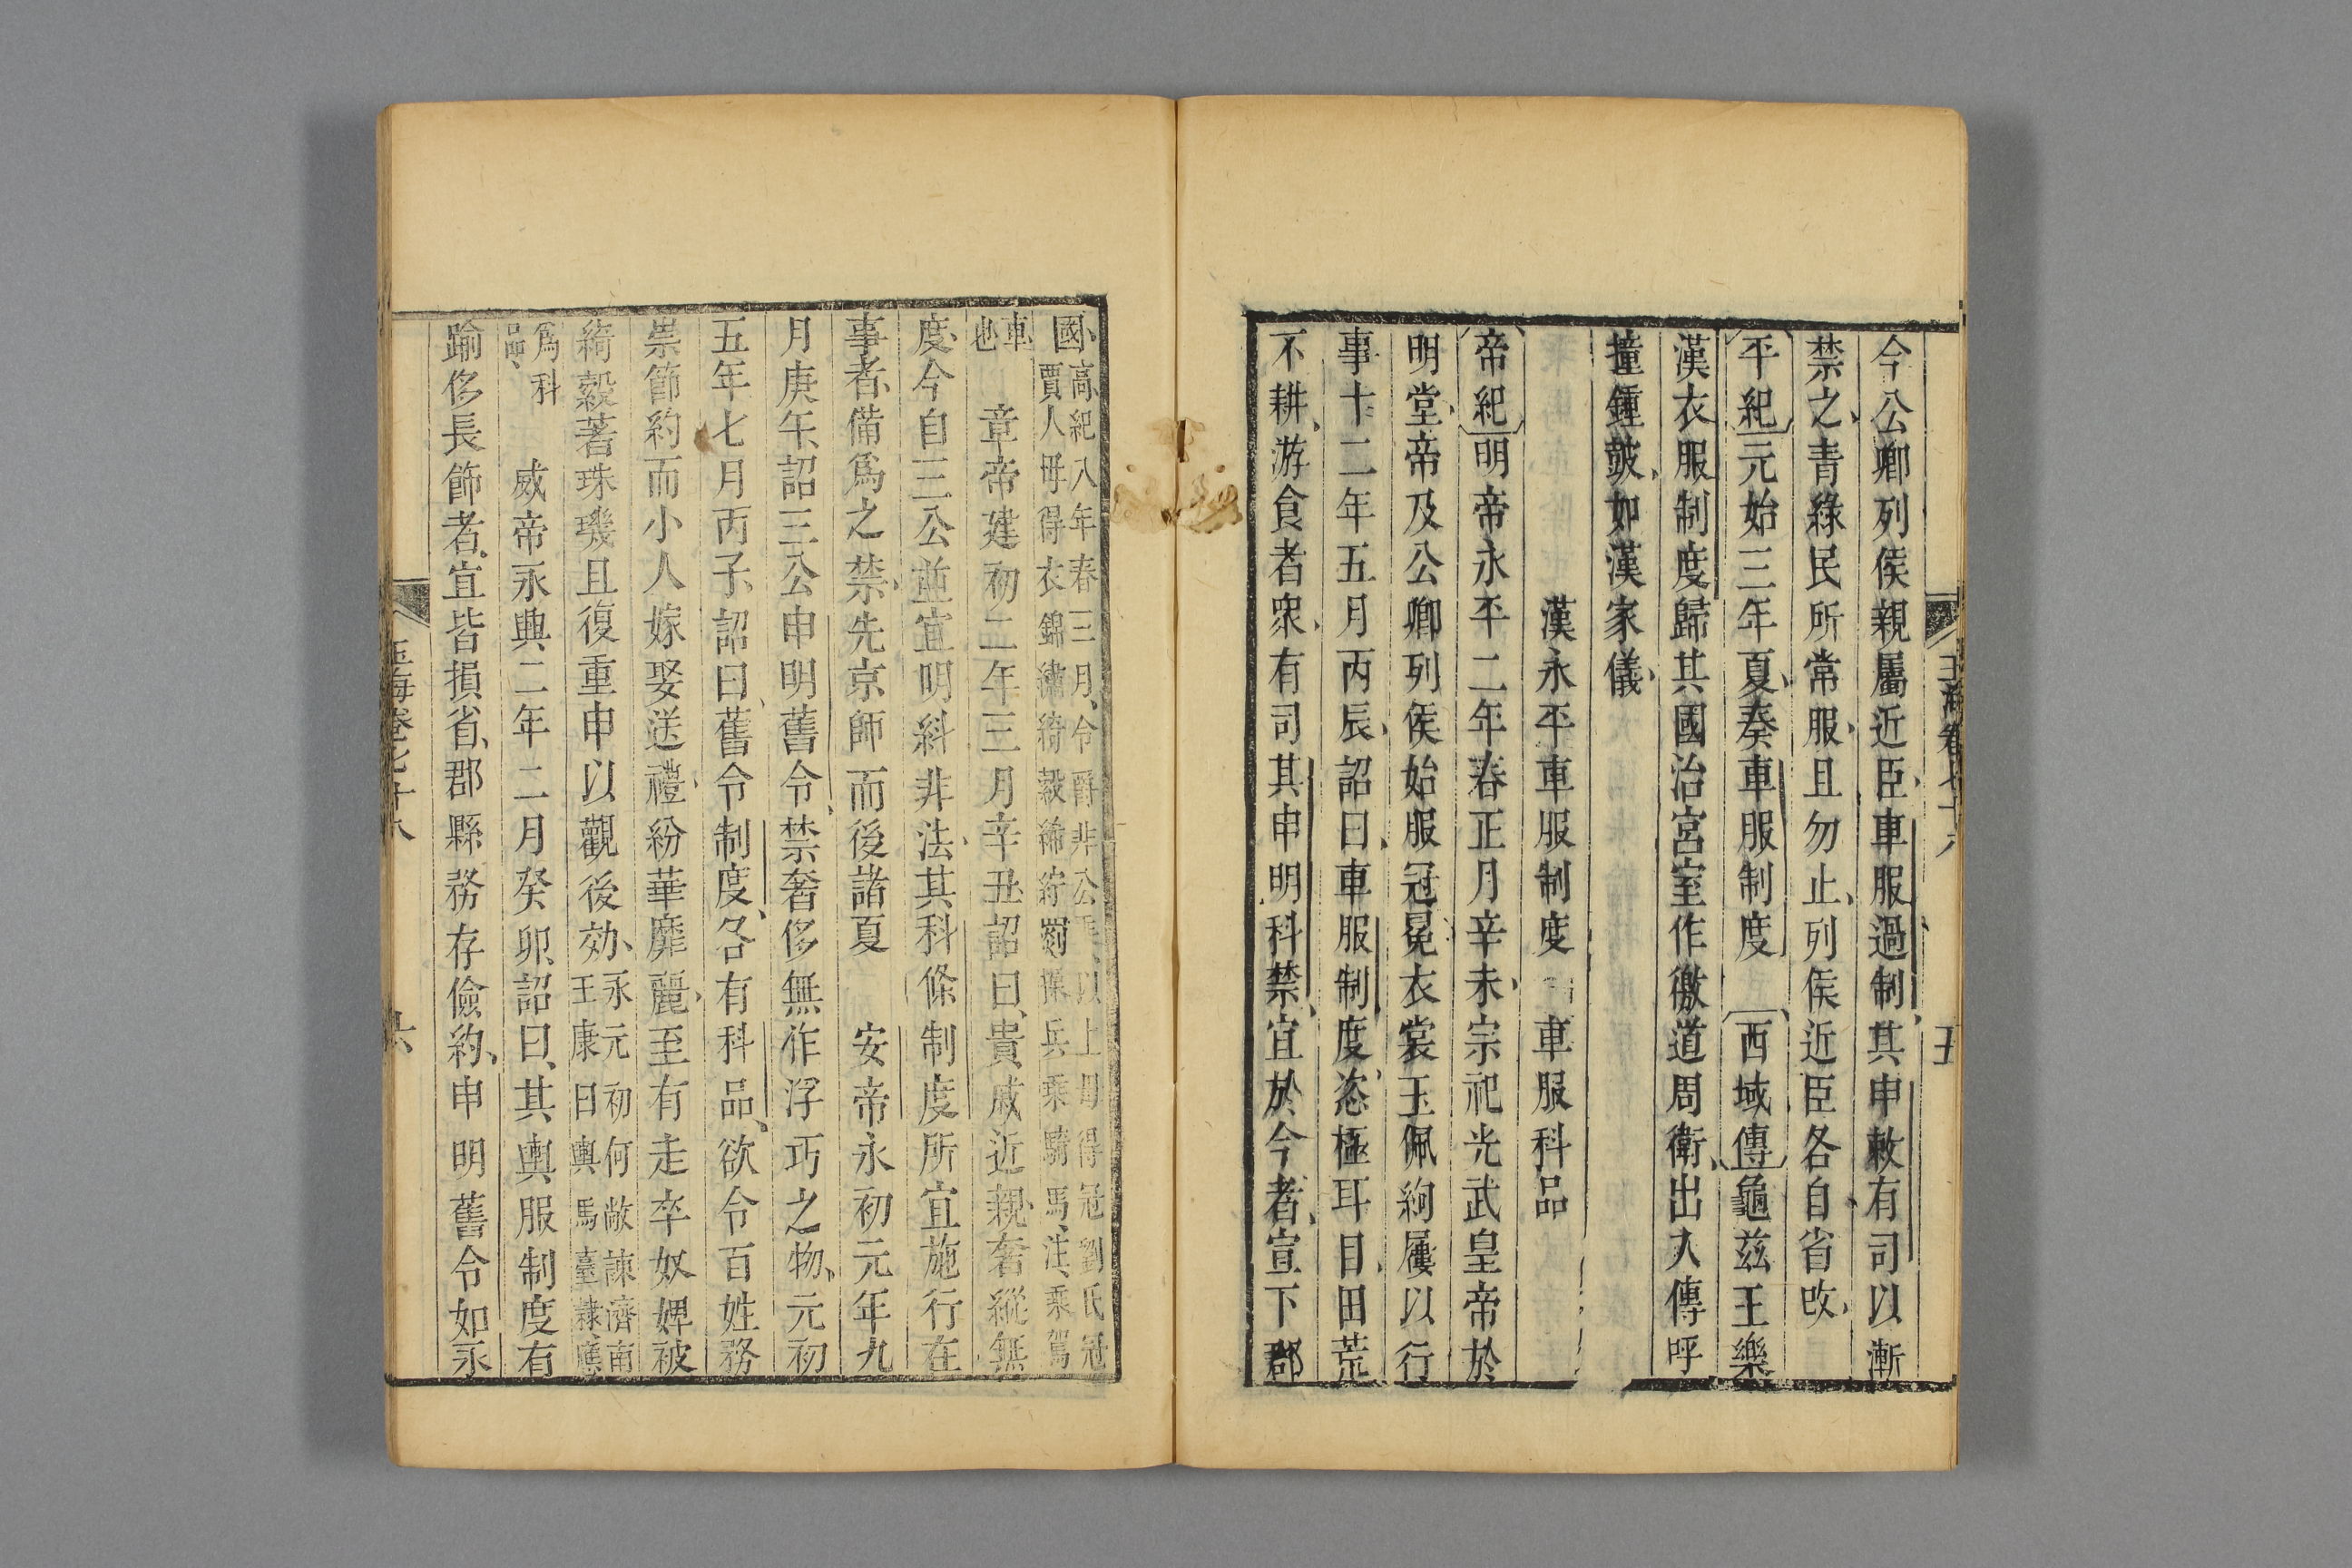 玉海卷七十八
五
今公卿列侯親屬近臣車服過制其申敕有司以漸
禁之青綠民所常服且勿止列侯近臣各自省改
平紀元始三年夏奏車服制度 西域傳龜茲王樂
漢衣服制度歸其國治宮室作徼道周衛出入傳呼
撞鍾鼓如漢家儀
漢永平車服制度 車服科品
帝紀明帝永平二年春正月辛未宗祀光武皇帝於
明堂帝及公卿列侯始服冠冕衣裳玉佩絇屨以行
事十二年五月丙辰詔曰車服制度恣極耳目田荒
不耕游食者衆有司其申明科禁宜於今者宣下郡
國
高紀八年春三月令爵非公以上毋得冠劉氏冠
賈人毋得衣錦繡綺縠絺紵罽操兵乘騎馬注乘駕
車
也
章帝建初二年三月辛丑詔曰貴戚近親奢縱無
度今自三公並宜明糾非法其科條制度所宜施行在
事者備爲之禁先京師而後諸夏 安帝永初元年九
月庚午詔三公申明舊令禁奢侈無作浮巧之物元初
五年七月丙子詔曰舊令制度各有科品欲令百姓務
崇節約而小人嫁娶送禮紛華靡麗至有走卒奴婢被
綺縠著珠璣且復重申以觀後効
永元初何敞諫濟南
王康曰輿馬臺隷應
爲科
品
威帝永興二年二月癸卯詔曰其輿服制度有
踰侈長飾者宜皆損省郡縣務存儉約申明舊令如永
玉海卷七十八
六